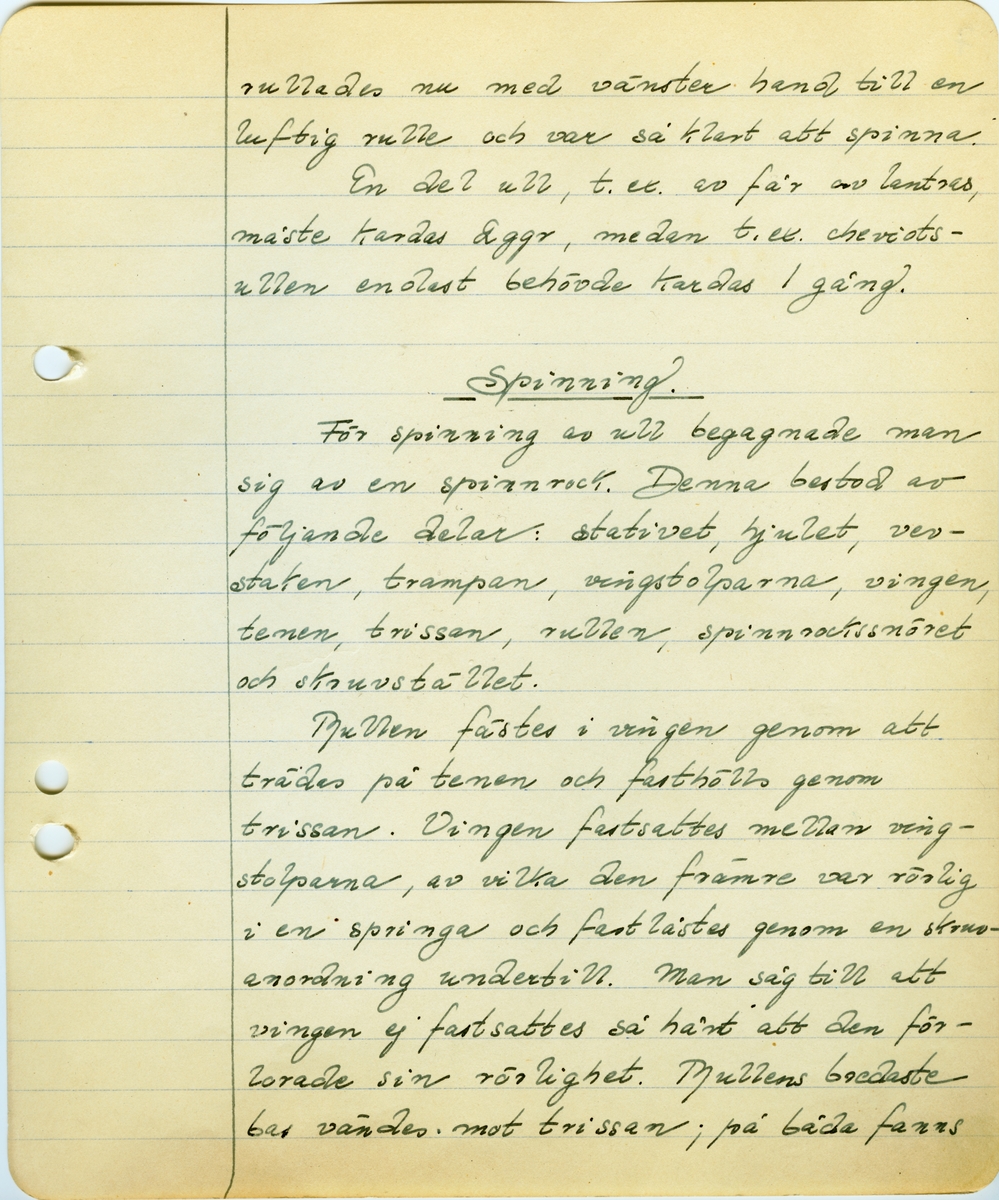 rullades nu med vänster hand till en
luftig rulle och var så klart att spinna.
En del ull, t.ex. av får av lantras,
måste kardas 2 ggr, medan t.ex. cheviots-
ullen endast behövde kardas 1 gång.
Spinning.
För spinning av ull begagnade man
sig av en spinnrock. Denna bestod av
följande delar: stativet, hjulet, vev-
staken, trampan, vingstolparna, vingen,
tenen, trissan, rullen, spinnrockssnöret
och skruvstället.
Rullen fästes i vingen genom att
trädas på tenen och fasthölls genom
trissan. Vingen fastsattes mellan ving-
stolparna, av vilka den främre var rörlig
i en springa och fastlåstes genom en skruv-
anordning undertill. Man såg till att
vingen ej fastsattes så hårt att den för-
lorade sin rörlighet. Rullens bredaste
bas vändes mot trissan; på båda fanns